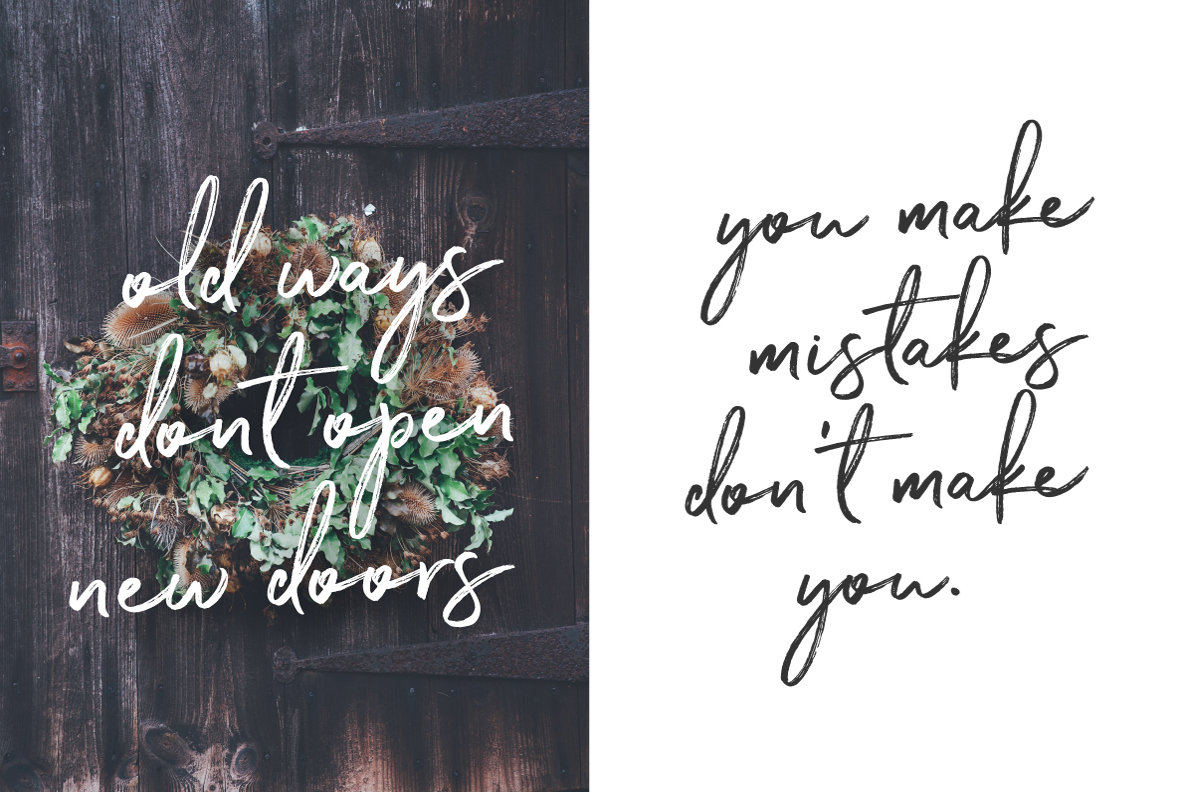 old ways
dont open
new doors
you make
mistakes
don't make
you.